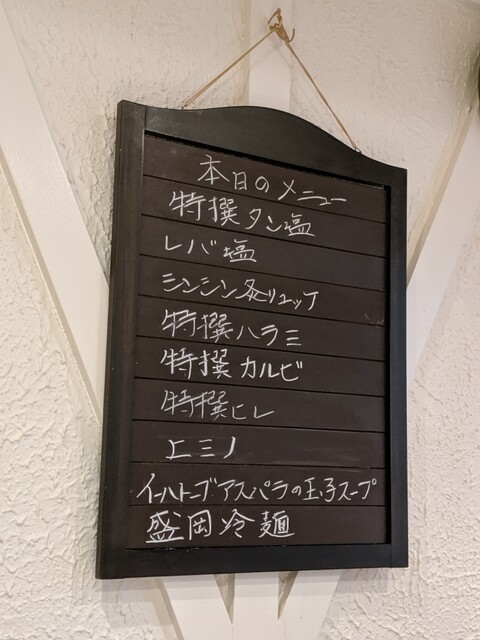 本日のメニュー
特撰タン塩
レバ塩
シンシン炙りユッケ
特撰ハラミ
特撰カルビ
特撰ヒレ
上ミノ
イーハトーブアスパラの玉子スープ
盛岡冷麺